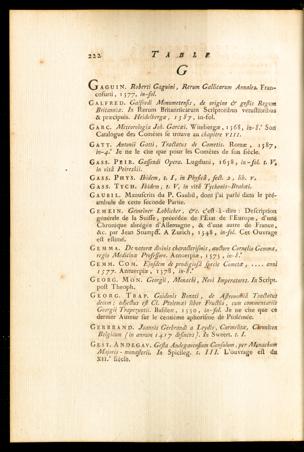 222 TABLE
G
GAGUIN. Roberti Gaguini, Rerum Gallicarum Annales. Fran-
cofurti, 1577, in-fol.
GALFRED. Galfredi Monumetensis, de origine & gestis Regum
Britanniæ. In Rerum Britannicarum Scriptoribus vetustioribus
& præcipuis. Heidelbergæ, 1587, in-fol.
GARC. Meteorologia Joh. Garcæi. Witebergæ, 1568, in-8.° Son
Catalogue des Comètes se trouve au chapitre VIII.
GATT. Antonii Gatti, Tractatus de Cometis. Romæ, 1587,
in-4.° Je ne le cite que pour les Comètes de son siècle.
GASS. PEIR. Gassendi Opera. Lugduni, 1658, in-fol. t. V,
in vitâ Peireskii.
GASS. PHYS. Ibidem, t. I, in Physicâ, sect. 2, lib. v.
GASS. TYCH. Ibidem, t. V, in vitâ Tychonis-Brahæi.
GAUBIL. Manuscrits du P. Gaubil, dont j'ai parlé dans le pré-
ambule de cette seconde Partie.
GEMEIN. Gemeiner Loblicher, &c. c'est-à-dire: Description
générale de la Suisse, précédée de l'État de l'Europe, d'une
Chronique abrégée d'Allemagne, & d'une autre de France,
&c. par Jean Stumpf. A Zurich, 1548, in-fol. Cet Ouvrage
est estimé.
GEMMA. De naturæ divinis characterismis, auctore Cornelio Gemma,
regio Medicinæ Professore. Antuerpiæ, 1575, in-8.°
GEMM. COM. Ejusdem de prodigiosâ specie Cometæ, .... anni
1577. Antuerpiæ, 1578, in-8.°
GEORG. MON. Georgii, Monachi, Novi Imperatores. In Script.
post Theoph.
GEORG. TRAP. Guidonis Bonati, de Astronomiâ Tractatus
decem; adjectus est Cl. Ptolemæi liber Fructûs, cum commentariis
Georgii Trapezuntii. Basileæ, 1550, in-fol. Je ne cite que ce
dernier Auteur sur le centième aphorisme de Ptolémée.
GERBRAND. Joannis Gerbrandi a Leydis, Carmelitæ, Chronicon
Belgicum (in annum 1417 desinens). In Sweert. t. I.
GEST. ANDEGAV. Gesta Andegavensium Consulum, per Monachum
Majoris-monasterii. In Spicileg. t. III. L'ouvrage est du
XII.e siècle.